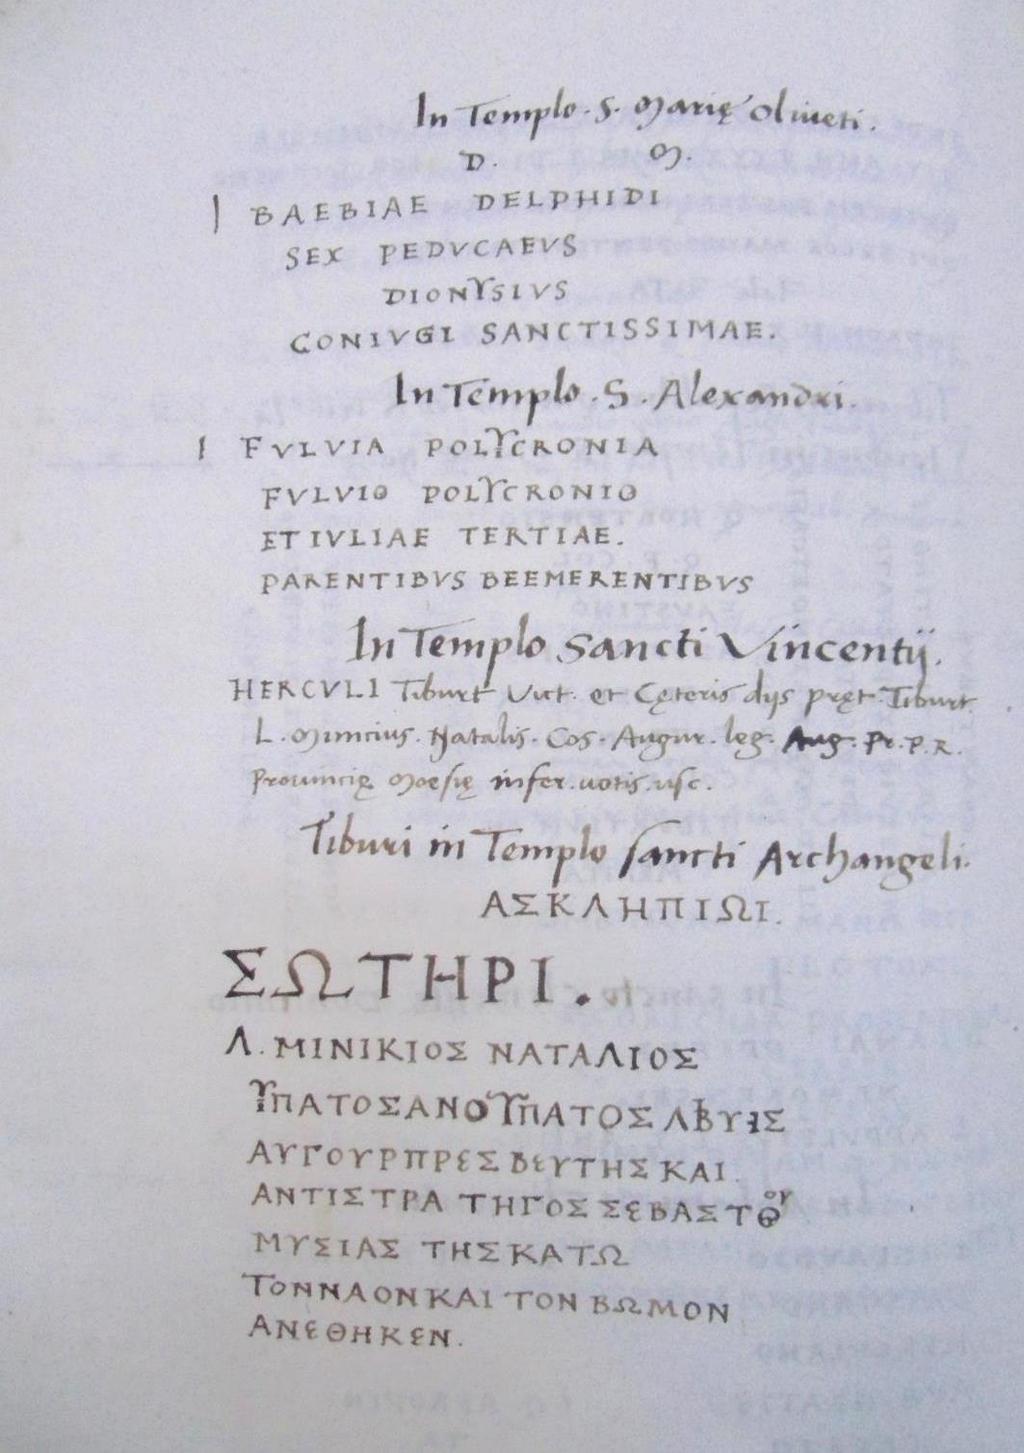 In Templo. S. Marię Oliueti.
D. M.
BAEBIAE DELPHIDI
SEX PEDVCAEVS
DIONYSIVS
CONIVGI SANCTISSIMAE.
In Templo. S. Alexandri.
FVLVIA POLYCRONIA
FVLVIO POLYCRONIO
ET IVLIAE TERTIAE.
PARENTIBVS BEEMERENTIBVS
In Templo Sancti Vincentij.
HERCVLI Tiburt Vict. et Cęteris dijs pręt. Tiburt
L. Minicius. Natalis. Cos. Augur. leg. Aug. Pr. P. R.
Prouincię Moesię infer. uotis. usc.
Tiburi in Templo sancti Archangeli.
ΑΣΚΛΗΠΙΩΙ.
ΣΩΤΗΡΙ.
Λ. ΜΙΝΙΚΙΟΣ ΝΑΤΑΛΙΟΣ
ΥΠΑΤΟΣ ΑΝΟΥΠΑΤΟΣ
ΑΥΓΟΥΡ ΠΡΕΣΒΕΥΤΗΣ ΚΑΙ
ΑΝΤΙΣΤΡΑ ΤΗΓΟΣ ΣΕΒΑΣΤΟΥ
ΜΥΣΙΑΣ ΤΗΣ ΚΑΤΩ
ΤΟΝ ΝΑΟΝ ΚΑΙ ΤΟΝ ΒΩΜΟΝ
ΑΝΕΘΗΚΕΝ.